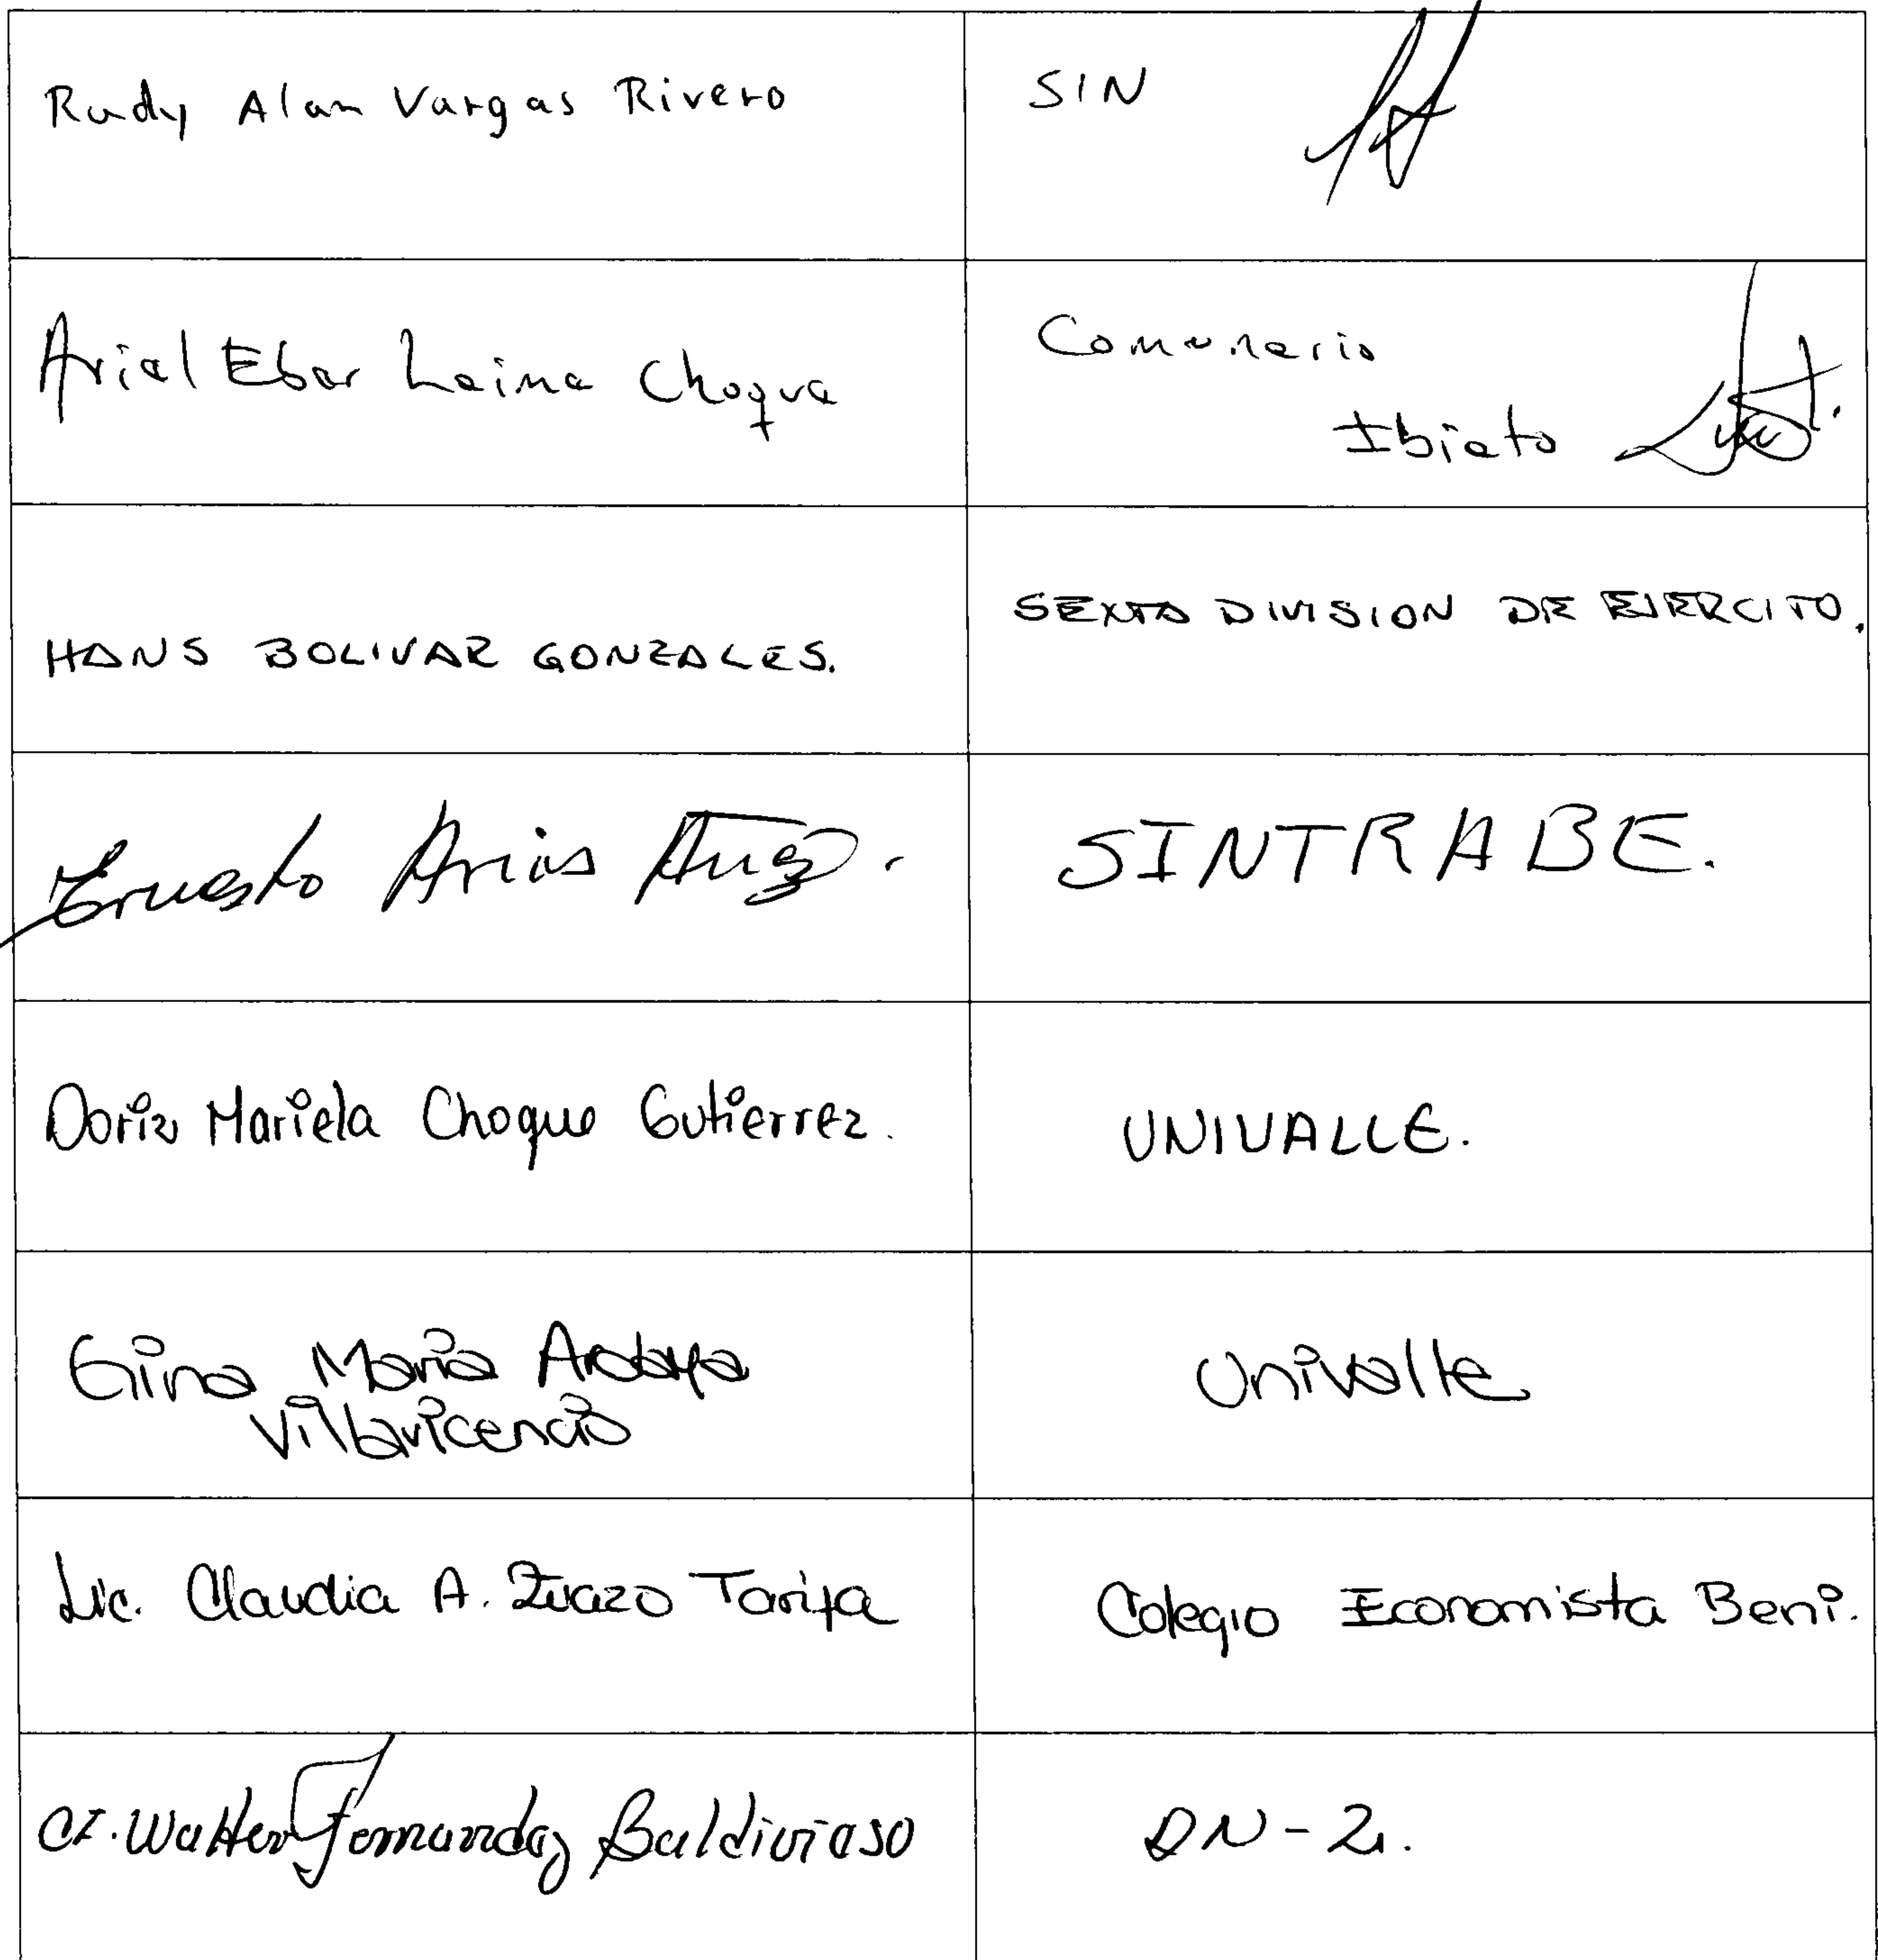 Rudy Alan Vargas Rivero
SIN
Ariel Eber Laima Choque
Comunario
Ibiato
HANS BOLIVAR GONZALES.
SEXTA DIVISION DE EJERCITO.
Ernesto Arias
SINTRABE.
Doris Mariela Choque Gutierrez.
UNIVALLE.
Gina Maria Andaya
Villavicencio
Univalle
Lic. Claudia A. Zuazo Tarifa
Colegio Economista Beni.
CF. Walter Fernandez Baldivieso
DN-2.